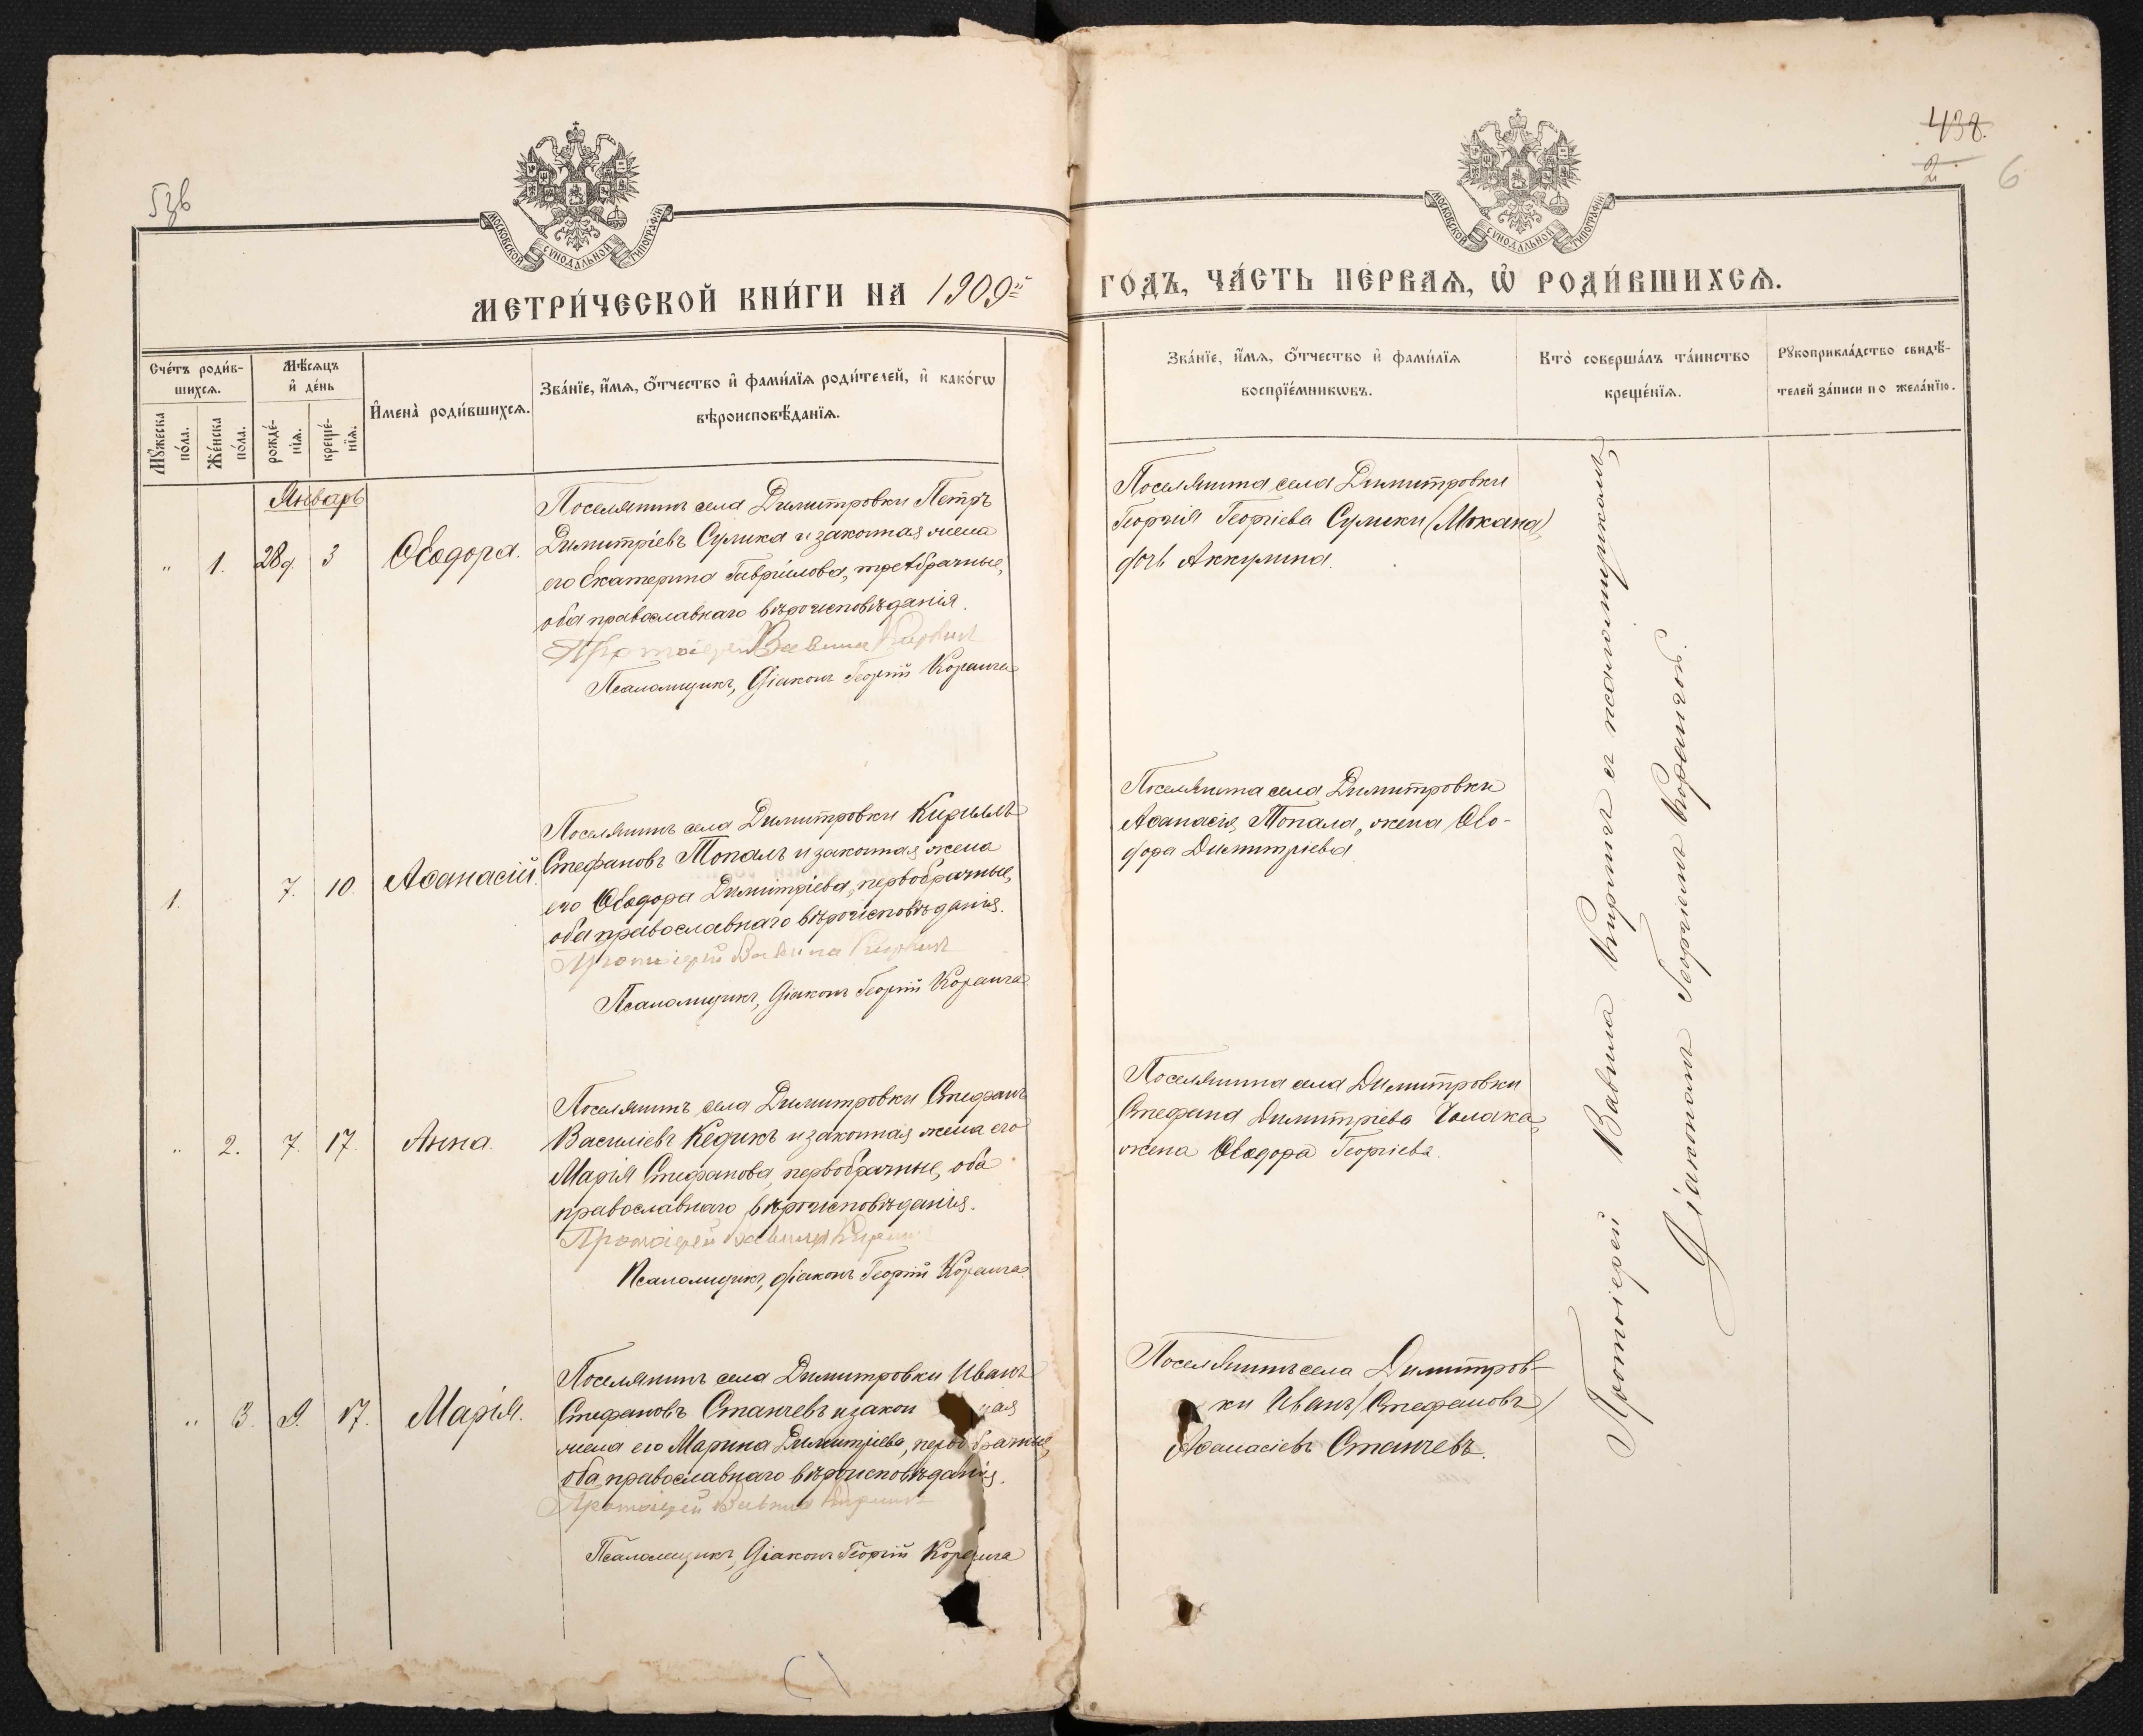 438.
2
6
МОСКОВСКОЙ СУНОДАЛЬНОЙ ТИПОГРАФІИ
МОСКОВСКОЙ СУНОДАЛЬНОЙ ТИПОГРАФІИ
МЕТРИ́ЧЕСКОЙ КНИ́ГИ НА 1909й
ГО́ДЪ, ЧА́СТЬ ПЕ́РВАѦ, Ѿ РОДИ́ВШИХСѦ.
Сче́тъ роди́в-
шихсѧ.
Мꙋ́жеска
по́ла.
Же́нска
по́ла.
Мѣ́сѧцъ
и҆ де́нь
рожде́-
нїѧ.
креще́-
нїѧ.
И҆мена̀ роди́вшихсѧ.
Зва́нїе, и҆́мѧ, ѻ҆́тчество и҆ фами́лїѧ роди́телей, и҆ како́гѡ
вѣроисповѣ́данїѧ.
Зва́нїе, и҆́мѧ, ѻ҆́тчество и҆ фами́лїѧ
воспрїе́мникѡвъ.
Кто̀ соверша́лъ та́инство
креще́нїѧ.
Рꙋкоприкла́дство свидѣ́-
телей за́писи по жела́нїю.
Январь
" 1. 28д. 3 Ѳеодора.
Поселянинъ села Димитровки Петръ
Димитріевъ Сулика и законная жена
его Екатерина Гавріилова, третбрачные,
оба православнаго вѣроисповѣданія.
Протоіерей Вавила Кирпин
Псаломщикъ, Діаконъ Георгій Коранга
Поселянина села Димитровки
Георгія Георгіева Сулики (Мокана)
дочь Аккулина.
1. 7. 10. Аѳанасій.
Поселянинъ села Димитровки Кириллъ
Стефановъ Топалъ и законная жена
его Ѳеодора Димитріева, первобрачные,
оба православнаго вѣроисповѣданія.
Протоіерей Вавила
Псаломщикъ, Діаконъ Георгій Коранга
Поселянина села Димитровки
Аѳанасія Топала, жена Ѳео-
дора Димитріева.
" 2. 7. 17. Анна.
Поселянинъ села Димитровки Стефанъ
Василіевъ Кедикъ и законная жена его
Марія Стефанова, первобрачные, оба
православнаго вѣроисповѣданія.
Протоіерей Вавила
Псаломщикъ, Діаконъ Георгій Коранга
Поселянина села Димитровки
Стефана Димитріева Чолака,
жена Ѳеодора Георгіева.
" 3. 9. 17. Марія.
Поселянинъ села Димитровки Иванъ
Стефановъ Станчевъ и закон ная
жена его Марина Димитріева, первобрачные,
оба православнаго вѣроисповѣданія.
Протоіерей Вавила
Псаломщикъ, Діаконъ Георгій Коранга
Поселянинъ села Димитров-
ки Иванъ (Стефановъ)
Аѳанасіевъ Станчевъ.
Протоіерей Вавила съ псаломщикомъ
Діакономъ Георгіемъ Корангой.